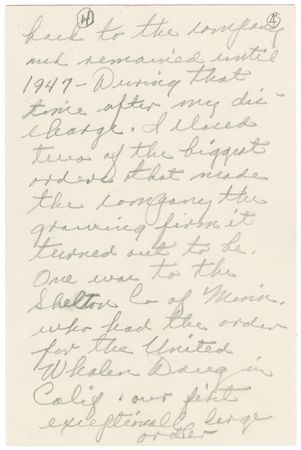 4 4
back to the company
and remained until
1947 - During that
time after my dis-
charge. I closed
two of the biggest
orders that made
the company the
growing firm it
turned out to be.
One was to the
Shelton Co of Minn.
who had the order
for the United
Whalen in
Calif. our first
exceptionally large
order